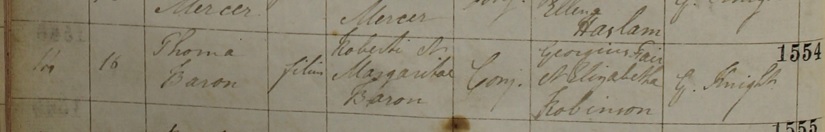 Mercer Mercer Ellena Haslam
1554
16 Thoma Baron filius Roberti et Margaritae Baron Conj. Georgius Fair et Elizabetha Robinson G. Knight
1555